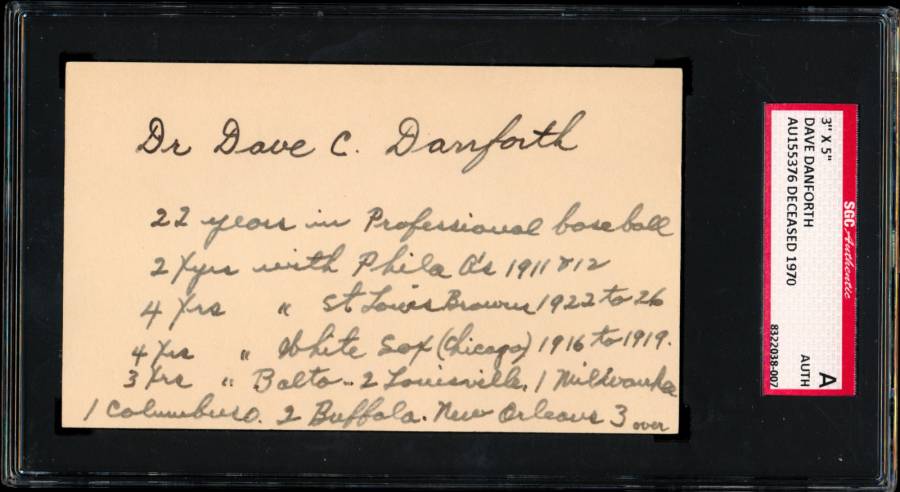 Dr Dave C. Danforth
22 years in Professional baseball
2 yrs with Phila A's 1911 & 12
4 Yrs " St Louis Browns 1922 to 26
4 Yrs " White Sox (Chicago) 1916 to 1919.
3 Yrs " Balto - 2 Louisville, 1 Milwaukee
1 Columbus. 2 Buffalo. New Orleans 3 over
SGC Authentic
3" X 5"
DAVE DANFORTH
AU155376 DECEASED 1970
A
AUTH
8322038-007